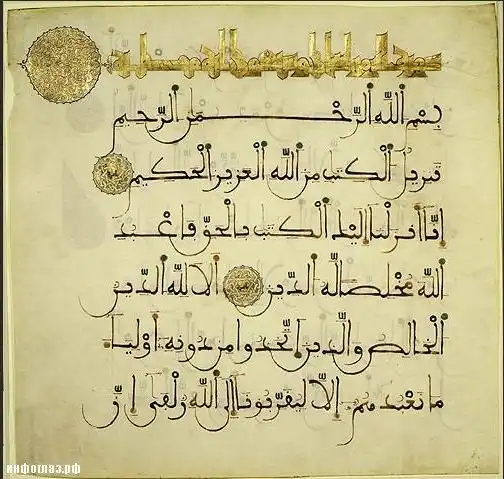 بِسْمِ اللَّهِ الرَّحْمَٰنِ الرَّحِيمِ
تَنزِيلُ الْكِتَٰبِ مِنَ اللَّهِ الْعَزِيزِ الْحَكِيمِ
إِنَّا أَنزَلْنَا إِلَيْكَ الْكِتَٰبَ بِالْحَقِّ فَاعْبُدِ
اللَّهَ مُخْلِصًا لَّهُ الدِّينَ أَلَا لِلَّهِ الدِّينُ
الْخَالِصُ وَالَّذِينَ اتَّخَذُوا مِن دُونِهِ أَوْلِيَاءَ
مَا نَعْبُدُهُمْ إِلَّا لِيُقَرِّبُونَا إِلَى اللَّهِ زُلْفَىٰ إِنَّ
инфоглаз.рф